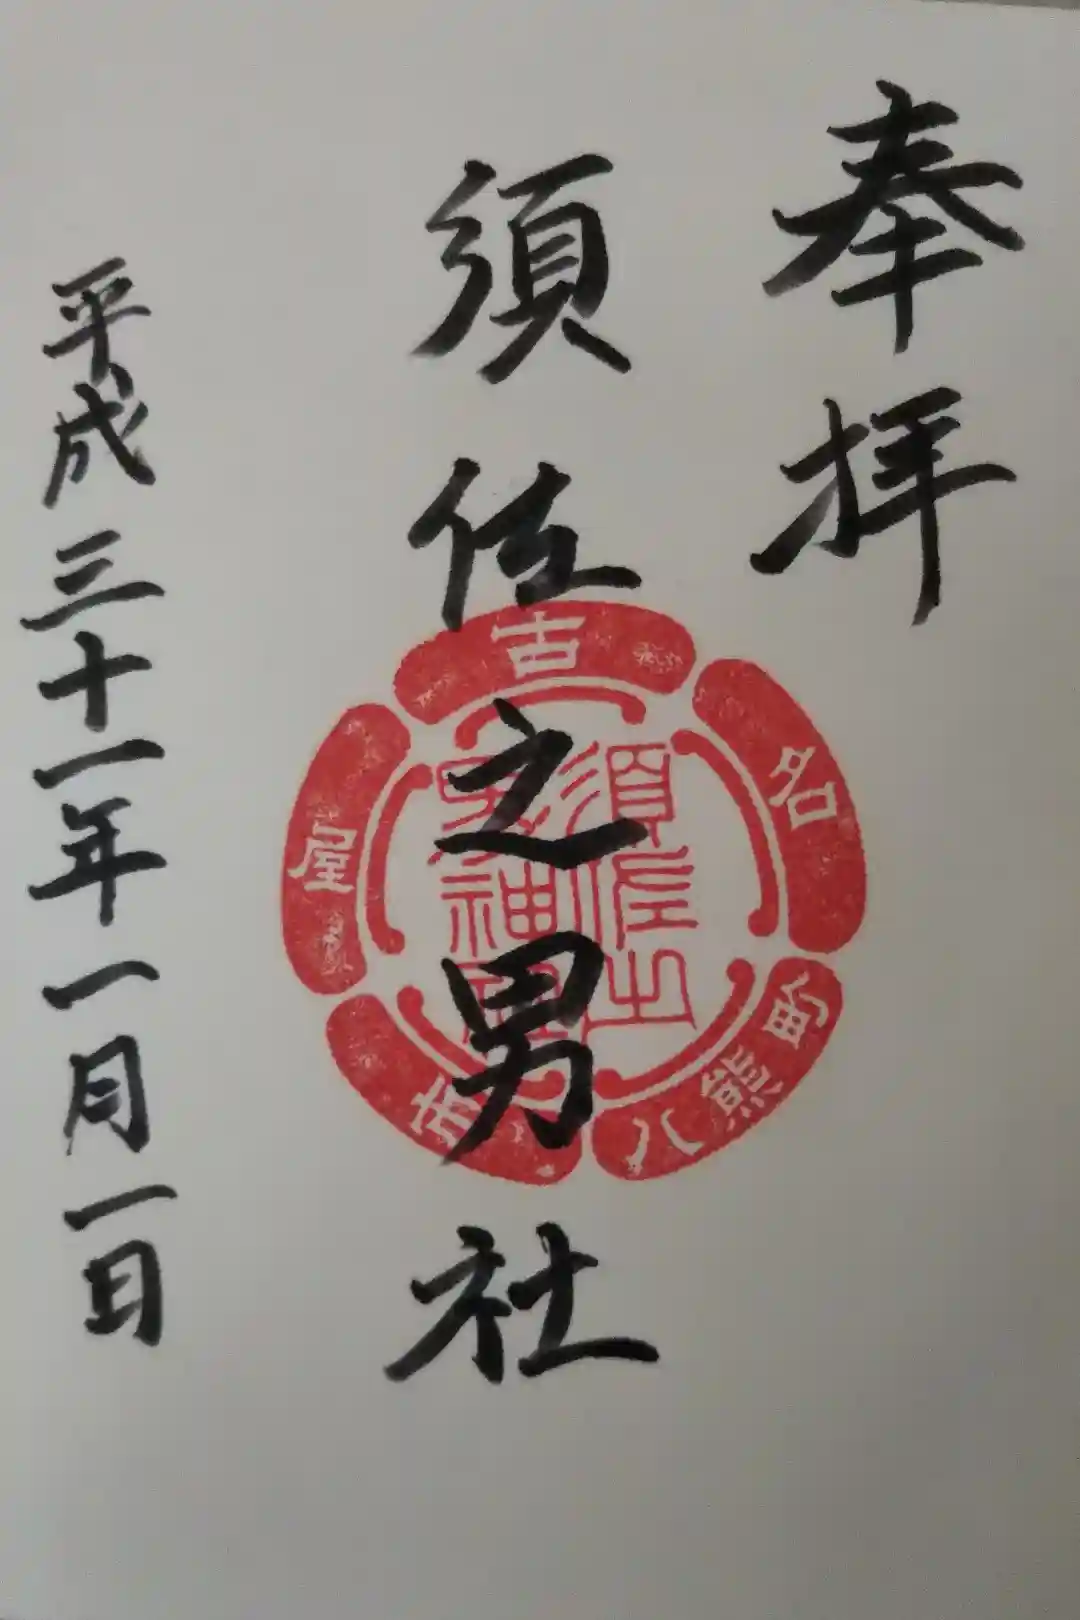 奉拝
須佐之男社
平成三十一年一月一日
名古屋市
八熊町
須佐之
男神